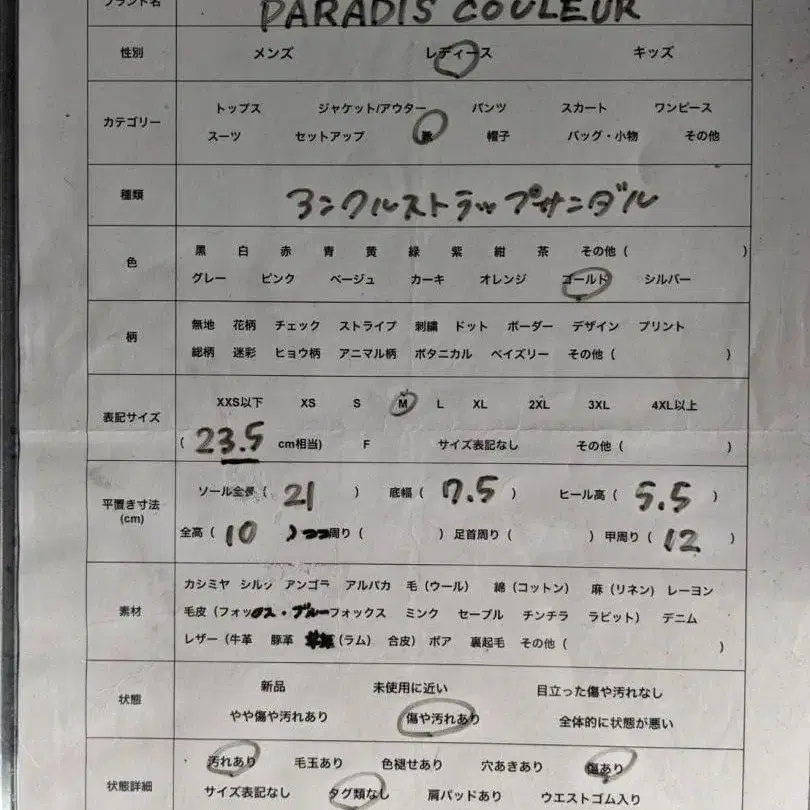 ブランド名 PARADIS COULEUR
性別 メンズ レディース キッズ
カテゴリー
トップス ジャケット/アウター パンツ スカート ワンピース
スーツ セットアップ 靴 帽子 バッグ・小物 その他
種類 アンクルストラップサンダル
色
黒 白 赤 青 黄 緑 紫 紺 茶 その他 ( )
グレー ピンク ベージュ カーキ オレンジ ゴールド シルバー
柄
無地 花柄 チェック ストライプ 刺繍 ドット ボーダー デザイン プリント
総柄 迷彩 ヒョウ柄 アニマル柄 ボタニカル ペイズリー その他 ( )
表記サイズ
XXS以下 XS S M L XL 2XL 3XL 4XL以上
( 23.5 cm相当) F サイズ表記なし その他 ( )
平置き寸法
(cm)
ソール全長 ( 21 ) 底幅 ( 7.5 ) ヒール高 ( 5.5 )
全高 ( 10 ) 周り ( ) 足首周り ( ) 甲周り ( 12 )
素材
カシミヤ シルク アンゴラ アルパカ 毛 (ウール) 綿 (コットン) 麻 (リネン) レーヨン
毛皮 (フォックス・ブルーフォックス ミンク セーブル チンチラ ラビット) デニム
レザー (牛革 豚革 (ラム) 合皮) ボア 裏起毛 その他 ( )
状態
新品 未使用に近い 目立った傷や汚れなし
やや傷や汚れあり 傷や汚れあり 全体的に状態が悪い
状態詳細
汚れあり 毛玉あり 色褪せあり 穴あきあり 傷あり
サイズ表記なし タグ類なし 肩パッドあり ウエストゴム入り